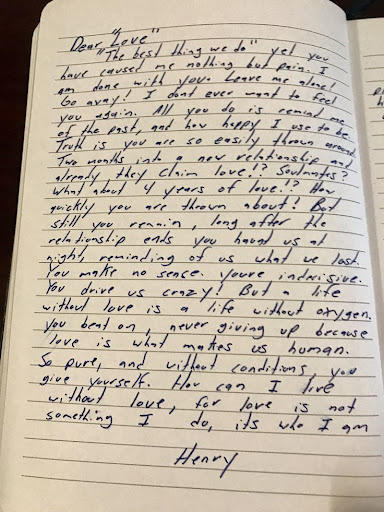 Dear "Love"
"The best thing we do" yet you
have caused me nothing but pain. I
am done with you. Leave me alone!
Go away! I dont ever want to feel
you again. All you do is remind me
of the past, and how happy I use to be.
Truth is you are so easily thrown around.
Two months into a new relationship and
already they claim love!? Soulmates?
What about 4 years of love!? How
quickly you are thrown about! But
still you remain, long after the
relationship ends you haunt us at
night, reminding of us what we lost.
You make no sense. youre indecisive.
You drive us crazy! But a life
without love is a life without oxygen.
You beat on, never giving up because
love is what makes us human.
So pure, and without conditions, you
give yourself. How can I live
without love, for love is not
something I do, its who I am
Henry